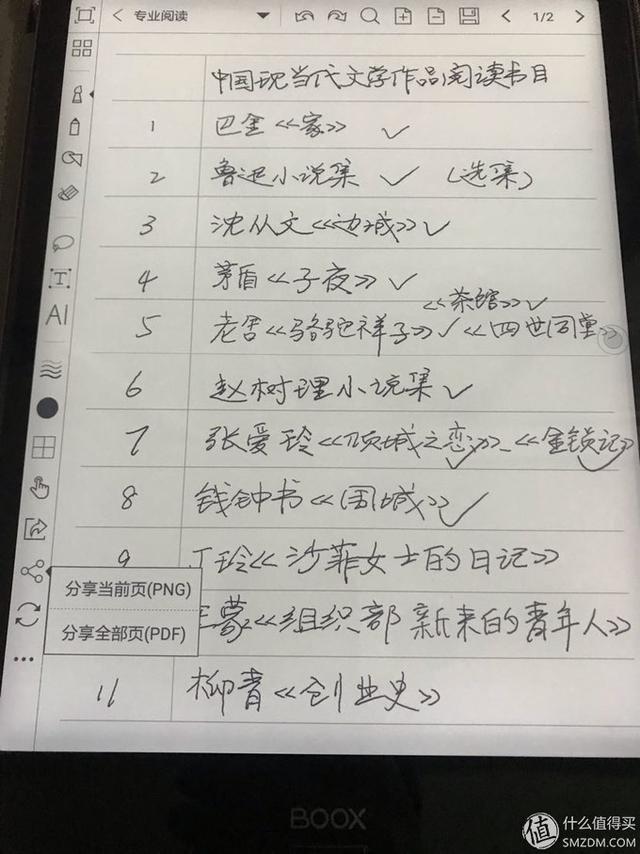 专业阅读 1/2
中国现当代文学作品阅读书目
1 巴金《家》 ✓
2 鲁迅小说集 ✓ (选集)
3 沈从文《边城》✓
4 茅盾《子夜》✓
《茶馆》✓
5 老舍《骆驼祥子》✓《四世同堂》
6 赵树理小说集 ✓
7 张爱玲《倾城之恋》、《金锁记》
8 钱钟书《围城》✓
9 丁玲《沙菲女士的日记》
王蒙《组织部新来的青年人》
11 柳青《创业史》
T
AI
分享当前页(PNG)
分享全部页(PDF)
BOOX
值 什么值得买
SMZDM.COM